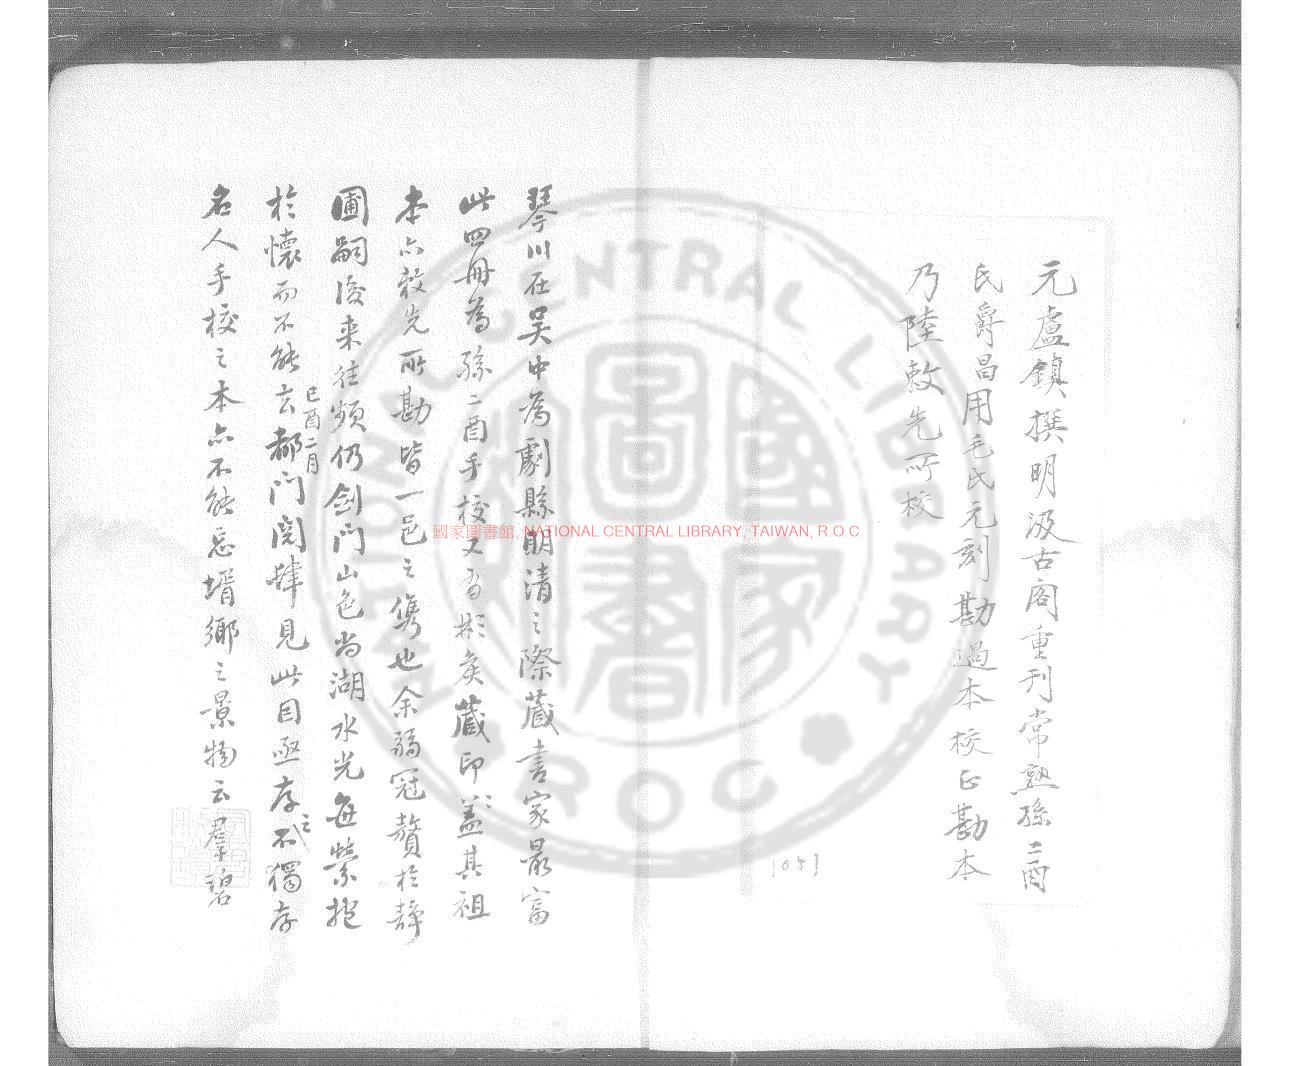 元盧鎮撰明汲古閣重刊常熟孫二酉
氏爵昌用毛氏元刻勘過本校正勘本
乃陸敕先所校
1053
琴川在吴中為劇縣明清之際藏書家最富
此四冊為孫二酉手校又有彬矦藏印蓋其祖
本亦敕先所勘皆一邑之雋也余弱冠贅於靜
圃嗣後来往頻仍劍门山色尚湖水光每縈抱
於懷而不能去都门閱肆見此因亟存之不獨存
己酉二月
名人手校之本亦不能忘壻鄉之景物云羣碧
國家圖書館, NATIONAL CENTRAL LIBRARY, TAIWAN, R.O.C.
NATIONAL CENTRAL LIBRARY
ROC
國家圖書